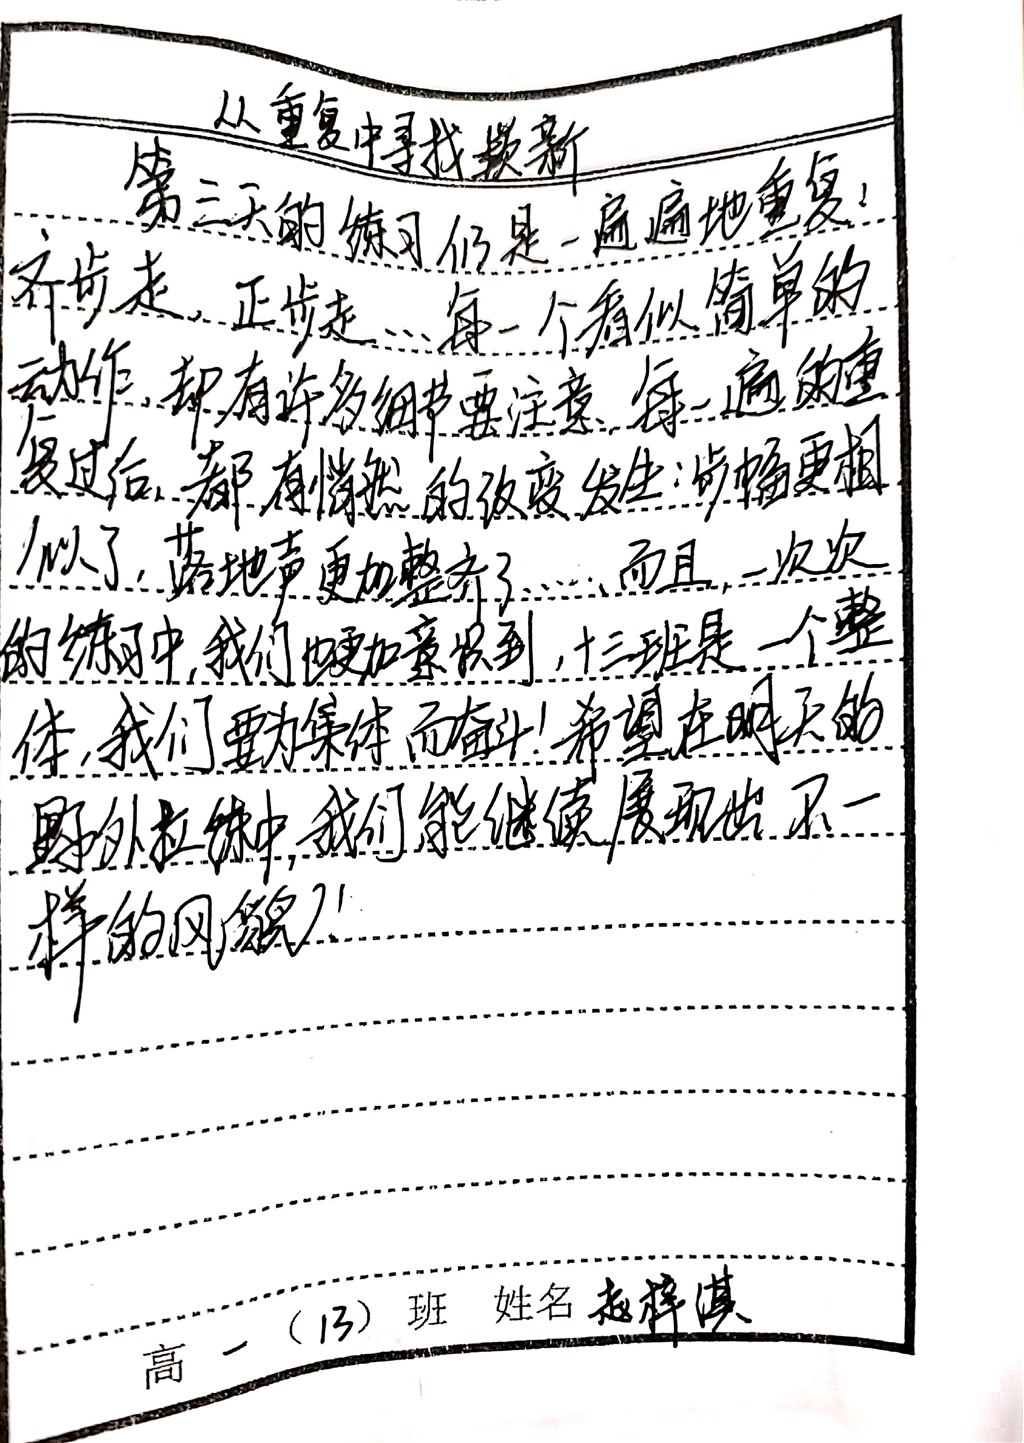 从重复中寻找崭新
第三天的练习仍是一遍遍地重复：
齐步走、正步走……每一个看似简单的
动作，却有许多细节要注意，每一遍的重
复过后，都有悄然的改变发生：步幅更相
似了，落地声更加整齐了……而且，一次次
的练习中，我们也更加意识到，十三班是一个整
体，我们要为集体而奋斗！希望在明天的
野外拉练中，我们能继续展现出不一
样的风貌！
高一（13）班 姓名 赵梓淇